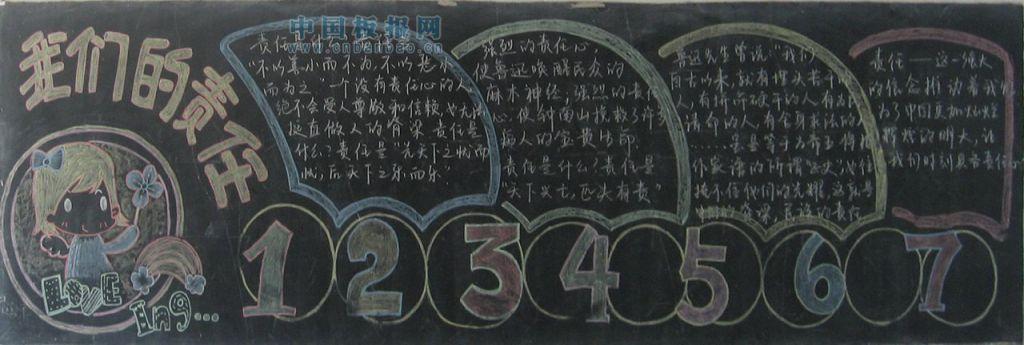 我们的责任
中国板报网
www.cnbanbao.cn
不以善小而不为,不以恶小
而为之。一个没有责任心的人
绝不会受人尊敬和信赖,也无法
挺直做人的脊梁。责任是
什么?责任是“先天下之忧而
忧,后天下之乐而乐”
强烈的责任心,
使鲁迅唤醒民众的
麻木神经,强烈的责任
心,使钟南山挽救了许多
病人的宝贵生命。
责任是什么?责任是
“天下兴亡,匹夫有责”
鲁迅先生曾说:“我们
自古以来,就有埋头苦干的
人,有拼命硬干的人,有为民
请命的人,有舍身求法的人
……虽是等于为帝王将相
作家谱的所谓‘正史’,也往往
掩不住他们的光耀,这就是
责任——这一强大
的信念推动着我们
为了中国更加灿烂
辉煌的明天,让
我们时刻肩负责任心
LOVE
Ing...
1 2 3 4 5 6 7